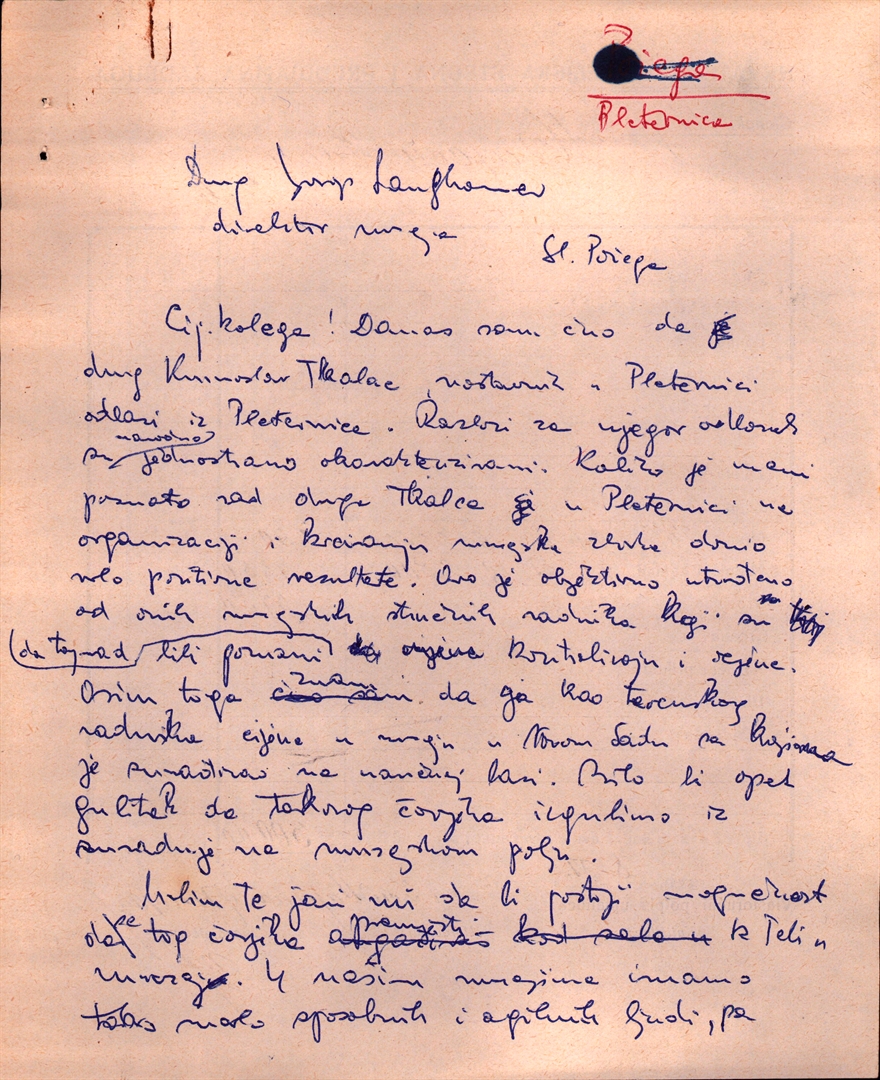 Požega
Pleternica
Drug Josip Langhamer
direktor muzeja
Sl. Požega
Cij. kolega! Danas sam čuo da je
drug Krunoslav Tkalac, nastavnik u Pleternici
odlazi iz Pleternice. Razlozi za njegov odlazak
su navodno jednostrano okarakterizirani. Koliko je meni
poznato rad druga Tkalca je u Pleternici na
organizaciji i kreiranju muzejske zbirke donio
vrlo pozitivne rezultate. Ovo je objektivno utvrđeno
od onih muzejskih stručnih radnika koji su
da taj rad bili pozvani kontroliraju i ocjene.
Osim toga čuo sam znam da ga kao terenskog
radnika cijene u muzeju u Novom Sadu sa kojima
je surađivao na naučnoj bazi. Bilo bi opet
gubitak da takovog čovjeka izgubimo iz
suradnje na muzejskom polju.
Molim te javi mi da li postoji mogućnost
da se tog čovjeka premjesti kod sebe u k Tebi u
muzej. U našim muzejima imamo
tako malo sposobnih i agilnih ljudi, pa